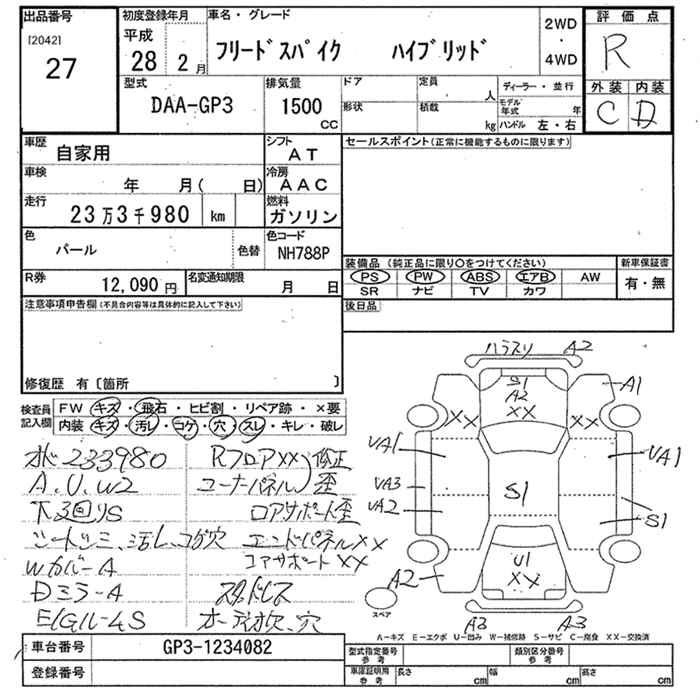 出品番号
[2042]
27
初度登録年月
平成
28 2月
車名・グレード
フリードスパイク ハイブリッド
2WD
・
4WD
評価点
R
外装 内装
C D
型式
DAA-GP3
排気量
1500
CC
ドア
形状
定員
人
積載
kg
ディーラー・並行
モデル年式 年
ハンドル 左・右
車歴
自家用
シフト
AT
車検
年 月( 日)
冷房
AAC
走行
23万3千980 km
燃料
ガソリン
色
パール
色替
色コード
NH788P
R券
12,090円
名変通知期限
月 日
セールスポイント(正常に機能するものに限ります)
装備品 (純正品に限り○をつけてください)
PS PW ABS エアB AW
SR ナビ TV カワ
新車保証書
有・無
後日品
注意事項申告欄(不具合内容等は具体的に記入して下さい)
修復歴 有〔箇所 〕
検査員記入欄
FW キズ・飛石・ヒビ割・リペア跡・×要
内装 キズ・汚レ・コゲ・穴・スレ・キレ・破レ
メ 233980
A.U.W2
下廻りS
シートシミ、汚レ、コゲ穴
Wカバー A
Dミラー A
RフロアXX 修正
コーナパネル 歪
ロアサポート歪
エンドパネルXX
コアサポートXX
スタッドレス
オーディオ欠、穴
A2
S1
A2
XX
A1
XX
XX
UA1
UA1
UA3
UA2
S1
S1
U1
XX
A2
A3
A3
スペア
A-キズ E-エクボ U-凹み W-補修跡 S-サビ C-腐食 XX-交換済
車台番号
GP3-1234082
登録番号
型式指定番号
参考
類別区分番号
参考
車庫証明用
参考
長さ cm
幅 cm
高さ cm